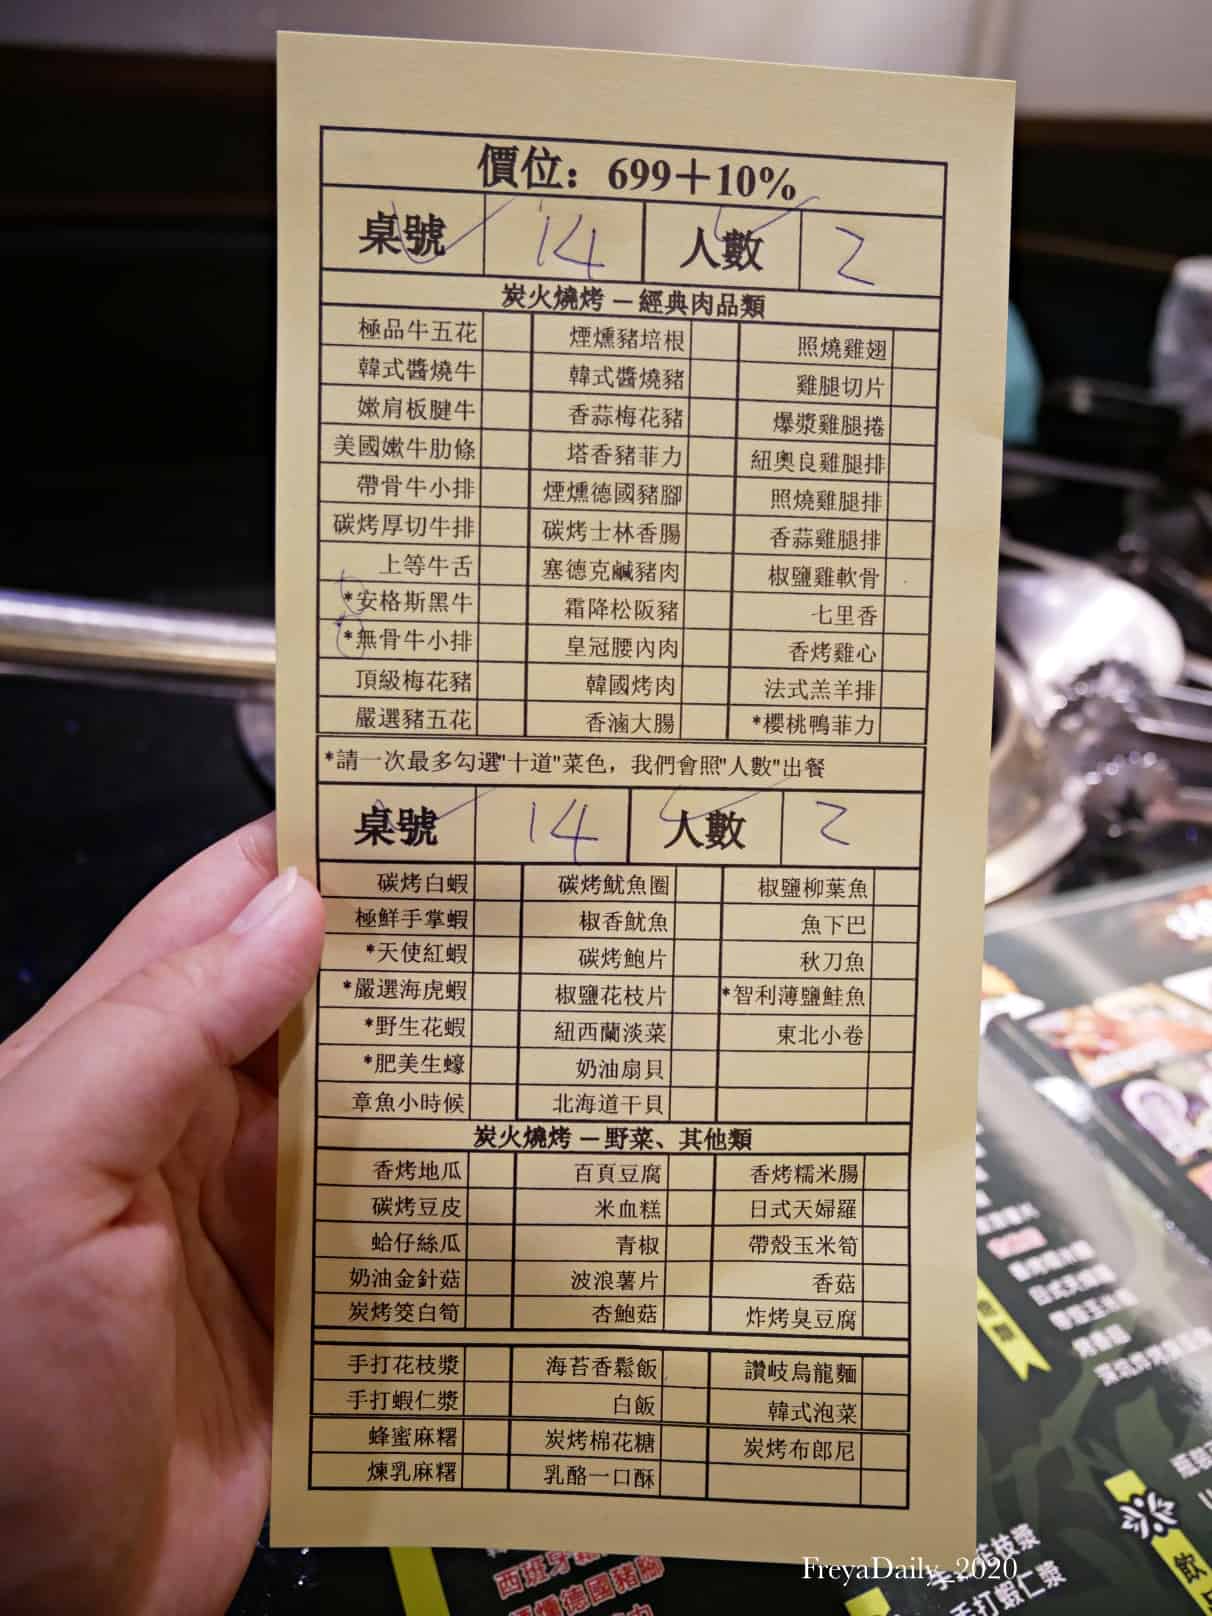 價位：699＋10%
桌號 14 人數 2
炭火燒烤－經典肉品類
極品牛五花 煙燻豬培根 照燒雞翅
韓式醬燒牛 韓式醬燒豬 雞腿切片
嫩肩板腱牛 香蒜梅花豬 爆漿雞腿捲
美國嫩牛肋條 塔香豬菲力 紐奧良雞腿排
帶骨牛小排 煙燻德國豬腳 照燒雞腿排
碳烤厚切牛排 碳烤士林香腸 香蒜雞腿排
上等牛舌 塞德克鹹豬肉 椒鹽雞軟骨
*安格斯黑牛 霜降松阪豬 七里香
*無骨牛小排 皇冠腰內肉 香烤雞心
頂級梅花豬 韓國烤肉 法式羔羊排
嚴選豬五花 香滷大腸 *櫻桃鴨菲力
*請一次最多勾選"十道"菜色，我們會照"人數"出餐
桌號 14 人數 2
碳烤白蝦 碳烤魷魚圈 椒鹽柳葉魚
極鮮手掌蝦 椒香魷魚 魚下巴
*天使紅蝦 碳烤鮑片 秋刀魚
*嚴選海虎蝦 椒鹽花枝片 *智利薄鹽鮭魚
*野生花蝦 紐西蘭淡菜 東北小卷
*肥美生蠔 奶油扇貝
章魚小時候 北海道干貝
炭火燒烤－野菜、其他類
香烤地瓜 百頁豆腐 香烤糯米腸
碳烤豆皮 米血糕 日式天婦羅
蛤仔絲瓜 青椒 帶殼玉米筍
奶油金針菇 波浪薯片 香菇
炭烤筊白筍 杏鮑菇 炸烤臭豆腐
手打花枝漿 海苔香鬆飯 讚岐烏龍麵
手打蝦仁漿 白飯 韓式泡菜
蜂蜜麻糬 炭烤棉花糖 炭烤布郎尼
煉乳麻糬 乳酪一口酥
枝漿
手打蝦仁漿
飲
FreyaDaily_2020